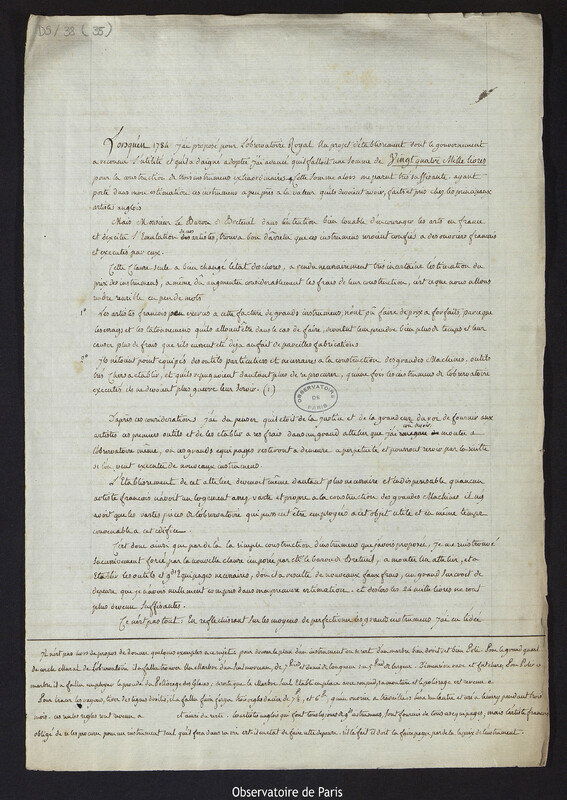 D5/38 (35)
Lorsqu'en 1784 j'ai proposé pour l'observatoire Royal un projet d'établissement dont le gouvernement
a reconnu l'utilité et qu'il a daigné adopter j'ai avancé qu'il falloit une somme de Vingt quatre Mille livres
pour la construction de trois instrumens extraordinaires. Cette somme alors me parut très suffisante, ayant
porté dans mon estimation ces instrumens a peu près a la valeur qu'ils devoient avoir, faits et pris chez les principaux
artistes anglois.
Mais Monsieur le Baron de Breteuil dans l'intention bien louable d'encourager les arts en france
et d'exciter l'Emulation de nos artistes, trouva bon d'arreter que ces instrumens seroient confiés a des ouvriers francois
et executés par eux.
Cette Clause seule a bien changé l'état des choses, a rendu necessairement très incertaine l'estimation du
prix des instrumens, a même du augmenter considerablement les frais de leur construction, c'est ce que nous allons
rendre sensible en peu de mots
1° Les artistes francois peu exercés a cette facture de grands instrumens, n'ont pu faire de prix a forfaits, parce que
les essays et les tatonnemens qu'ils alloient être dans le cas de faire, devoient leur prendre bien plus de temps et leur
causer plus de frais que s'ils eussent été déja au fait de pareilles fabrications.
2° Ils n'étoient point equipés des outils particuliers et necessaires a la construction des grandes Machines, outils
très chers a etablir, et qu'ils repugnoient d'autant plus de se procurer, qu'une fois les instrumens de l'observatoire
executés ils ne devoient plus guere leur servir. (1.)
OBSERVATOIRE DE PARIS
D'après ces considerations j'ai du penser qu'il étoit de la Justice et de la grandeur du roi de fournir aux
artistes ces premiers outils et de les etablir a ses frais dans un grand attelier que j'ai monté a
l'observatoire même, ou ces grands equipages resteront a demeure a perpetuité et pourront servir par la suite
si l'on veut executer de nouveaux instrumens.
L'Etablissement de cet attelier devenoit même d'autant plus necessaire et indispensable qu'aucun
artiste francois n'avoit un logement assez vaste et propre a la construction des grandes Machines il n'y
avoit que les vastes pièces de l'observatoire qui pussent être employées a cet objet utile et en même temps
convenable a cet edifice.
C'est donc ainsi que par de la la simple construction d'instrumens que j'avois proposée, je me suis trouvé
successivement forcé par la nouvelle clause imposée par M. le baron de Breteuil, a monter un attelier, et a
Etablir les outils et gds Equipages necessaires, d'où il a resulté de nouveaux faux frais, un grand surcroit de
depense que je n'avois nullement compris dans ma premiere estimation, et des lors les 24 mille livres ne sont
plus devenu suffisantes.
Ce n'est pas tout: en reflechissant sur les moyens de perfectionner les grands instrumens j'ai eu l'idée
Il n'est pas hors de propos de donner quelques exemples a ce sujet pour donner le plan d'un instrument on se sert d'un marbre bien droit et bien Poli. Pour le grand quart
de cercle Mural de l'observatoire il a fallu trouver un Marbre d'un seul morceau, de 7 pieds et demi de longueur sur 7 pieds de largeur.
marbre il a fallu employer le procédé du Pollissage des Glaces,
Pour tracer les rayons, tirer des lignes droites, il a fallu faire forger trois regles d'acier de 7 pds ½, et 6 pds, qu'un ouvrier a travaillé a limer
mois. ces seules regles vont revenir a et ainsi du reste. Les artistes anglois qui font tous les jours de gds instrumens, sont fournis de tous ces equipages, mais l'artiste francois
obligé de se les procurer pour un instrument seul qu'il fera dans sa vie est-il en état de faire cette depense. s'il la fait il doit la faire payer par de la le prix de l'instrument.
Observatoire de Paris